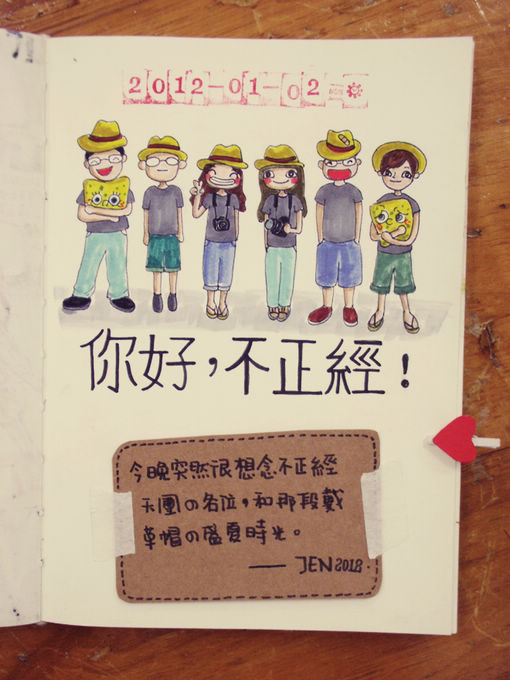 2012-01-02
你好，不正經！
今晚突然很想念不正經
天團の各位，和那段戴
草帽の盛夏時光。
—— JEN 2012.